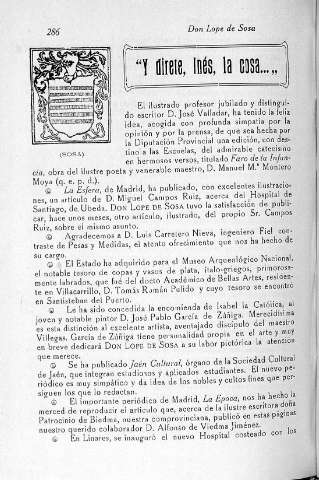 286
Don Lope de Sosa
"Y direte, Inés, la cosa...„
(SOSA)
El ilustrado profesor jubilado y distingui-
do escritor D. José Valladar, ha tenido la feliz
idea, acogida con profunda simpatía por la
opinión y por la prensa, de que sea hecha por
la Diputación Provincial una edición, con des-
tino a las Escuelas, del admirable catecismo
en hermosos versos, titulado Faro de la Infan-
cia, obra del ilustre poeta y venerable maestro, D. Manuel M.ª Montero
Moya (q. e. p. d.).
La Esfera, de Madrid, ha publicado, con excelentes ilustracio-
nes, un artículo de D. Miguel Campos Ruiz, acerca del Hospital de
Santiago, de Úbeda. DON LOPE DE SOSA tuvo la satisfacción de publi-
car, hace unos meses, otro artículo, ilustrado, del propio Sr. Campos
Ruiz, sobre el mismo asunto.
Agradecemos a D. Luis Carretero Nieva, ingeniero Fiel con-
traste de Pesas y Medidas, el atento ofrecimiento que nos ha hecho de
su cargo.
El Estado ha adquirido para el Museo Arqueológico Nacional,
el notable tesoro de copas y vasos de plata, italo-griegos, primorosa-
mente labrados, que fué del docto Académico de Bellas Artes, residen-
te en Villacarrillo, D. Tomás Román Pulido y cuyo tesoro se encontró
en Santisteban del Puerto.
Le ha sido concedida la encomienda de Isabel la Católica, al
joven y notable pintor D. José Pablo García de Záñiga. Merecidísima
es esta distinción al excelente artista, aventajado discípulo del maestro
Villegas. García de Záñiga tiene personalidad propia en el arte y muy
en breve dedicará DON LOPE DE SOSA a su labor pictórica la atención
que merece.
Se ha publicado Jaén Cultural, órgano de la Sociedad Cultural
de Jaén, que integran estudiosos y aplicados estudiantes. El nuevo pe-
riódico es muy simpático y da idea de los nobles y cultos fines que per-
siguen los que lo redactan.
El importante periódico de Madrid, La Epoca, nos ha hecho la
merced de reproducir el artículo que, acerca de la ilustre escritora doña
Patrocinio de Biedma, nuestra comprovinciana, publicó en estas páginas
nuestro querido colaborador D. Alfonso de Viedma Jiménez.
En Linares, se inauguró el nuevo Hospital costeado por los